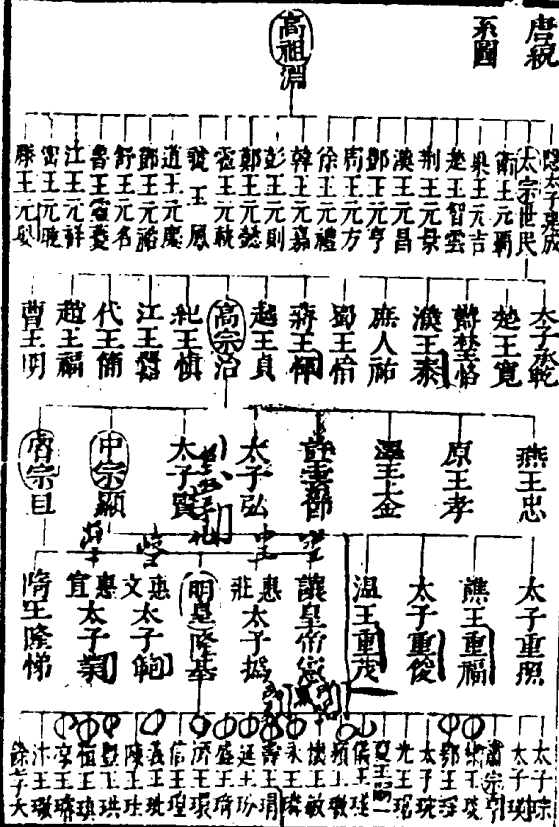 唐祝
系圖
高祖淵
太宗世民
衞王元霸
巢王元吉
楚王智雲
荆王元景
漢王元昌
鄧王元亨
周王元方
徐王元禮
韓王元嘉
彭王元則
鄭王元懿
霍王元軌
虢王鳳
道王元慶
鄧王元裕
舒王元名
魯王靈夔
江王元祥
密王元曉
滕王元嬰
太子承乾
楚王寬
鬱林恪
濮王泰
庶人祐
蜀王愔
蔣王惲
越王貞
高宗治
紀王慎
江王囂
代王簡
趙王福
曹王明
燕王忠
原王孝
澤王上金
許王素節
太子弘
太子賢
中宗顯
睿宗旦
太子重照
譙王重福
太子重俊
溫王重茂
讓皇帝憲
惠莊太子撝
明皇隆基
惠文太子範
惠宣太子業
隋王隆悌
太子琮
太子瑛
肅宗亨
棣王琰
鄂王瑤
太子琬
光王琚
夏王一
儀王璲
潁王璬
懷王敏
永王璘
壽王瑁
延王玢
盛王琦
濟王環
信王瑝
義王玼
陳王珪
豐王珙
恆王瑱
涼王璿
汴王璥